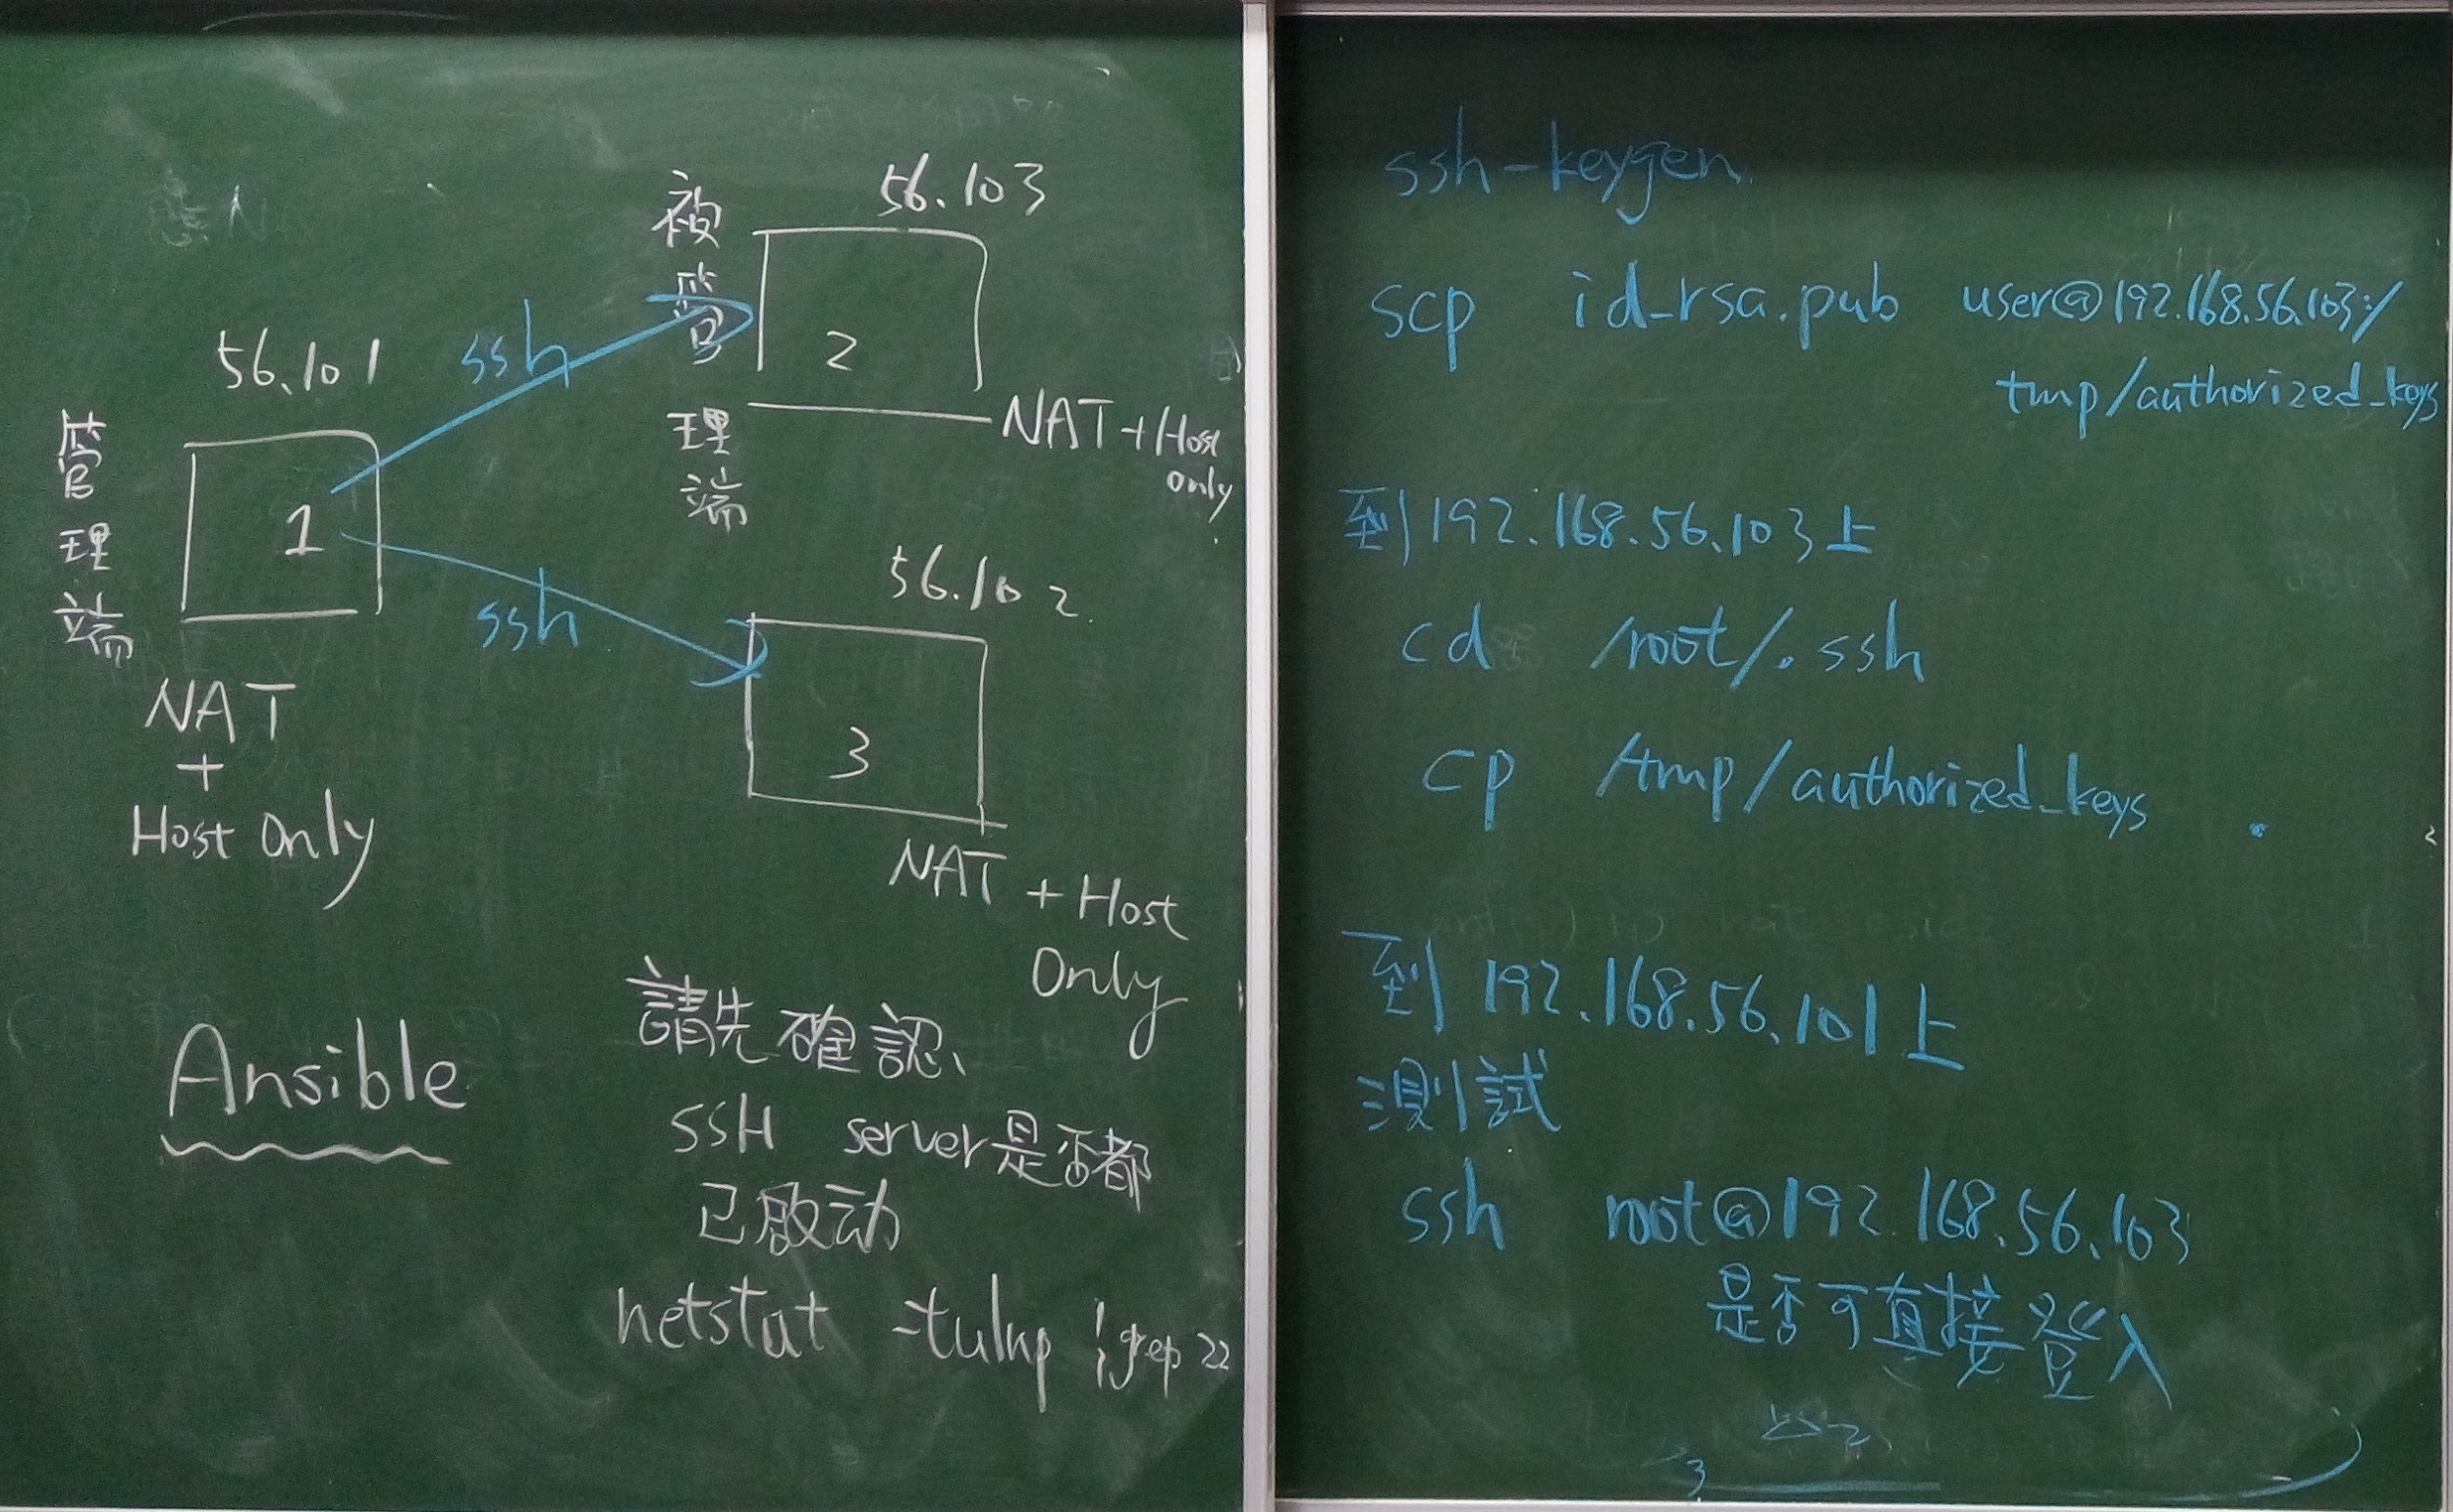 56.101
管理端
1
NAT
+
Host Only
ssh
ssh
被管理端
56.103
2
NAT + Host
Only
56.102
3
NAT + Host
Only
Ansible
請先確認、
SSH server是否都
已啟动
netstat -tulnp | grep 22
ssh-keygen
scp id_rsa.pub user@192.168.56.103:/
tmp/authorized_keys
到192.168.56.103上
cd /root/.ssh
cp /tmp/authorized_keys .
到 192.168.56.101上
測試
ssh root@192.168.56.103
是否可直接登入